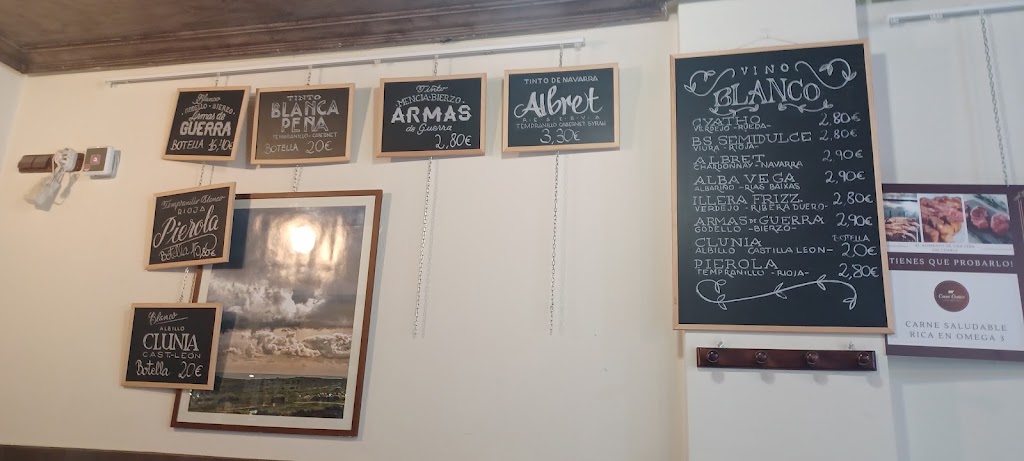 Blanco
GODELLO - BIERZO
Armas de
GUERRA
BOTELLA 16,40€
TINTO
BLANCA
PEÑA
TEMPRANILLO - CABERNET
BOTELLA 20€
Tinto
MENCIA - BIERZO
ARMAS
de Guerra
2,80€
TINTO DE NAVARRA
Albret
RESERVA
TEMPRANILLO CABERNET SYRAH
3,30€
Tempranillo Blanco
RIOJA
Pierola
Botella
Blanco
ALBILLO
CLUNIA
CAST-LEÓN
Botella 20€
VINO
BLANCO
CYATHO 2,80€
VERDEJO -RUEDA-
BS SEMIDULCE 2,80€
VIURA -RIOJA-
ALBRET 2,90€
CHARDONNAY -NAVARRA
ALBA VEGA 2,90€
ALBARIÑO - RIAS BAIXAS
ILLERA FRIZZ. 2,80€
VERDEJO - RIBERA DUERO-
ARMAS DE GUERRA 2,90€
GODELLO -BIERZO-
CLUNIA BOTELLA
ALBILLO CASTILLA LEON- 20€
PIEROLA 2,80€
TEMPRANILLO -RIOJA-
TIENES QUE PROBARLO!
CARNE SALUDABLE
RICA EN OMEGA 3